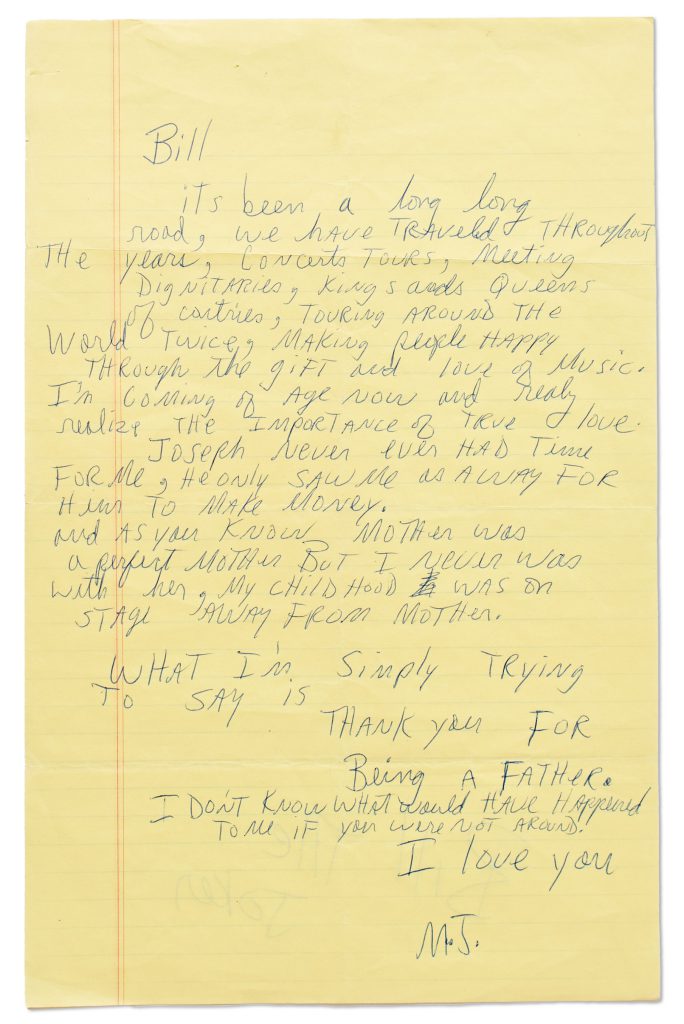 Bill
its been a long long
road, we have TRAVeled THROughout
THe years, Concerts TOURS, Meeting
DigNITARies, Kings ands Queens
of contries, TOURING AROUND THe
World Twice, MAKING people HAPPY
THROUGH the giFT and love of Music.
I'm coming of Age Now and realy
realize THE IMPORTANCe of TRUe love.
Joseph Never ever HAD Time
FOR Me, He only SAW Me as A WAY FOR
Him To MAKe Money.
and AS you KNOW MOTHer was
a perfect MOTHer BuT I never was
with her, My CHILDHOOD WAS on
STAGE AWAY FROM MOTHer.
WHAT I'm Simply TRYing
To SAY is
THANK you FOR
Being A FATHer.
I DON'T KNOW WHAT would HAVe HAppened
To Me iF you were NOT AROUND.
I love you
M.J.